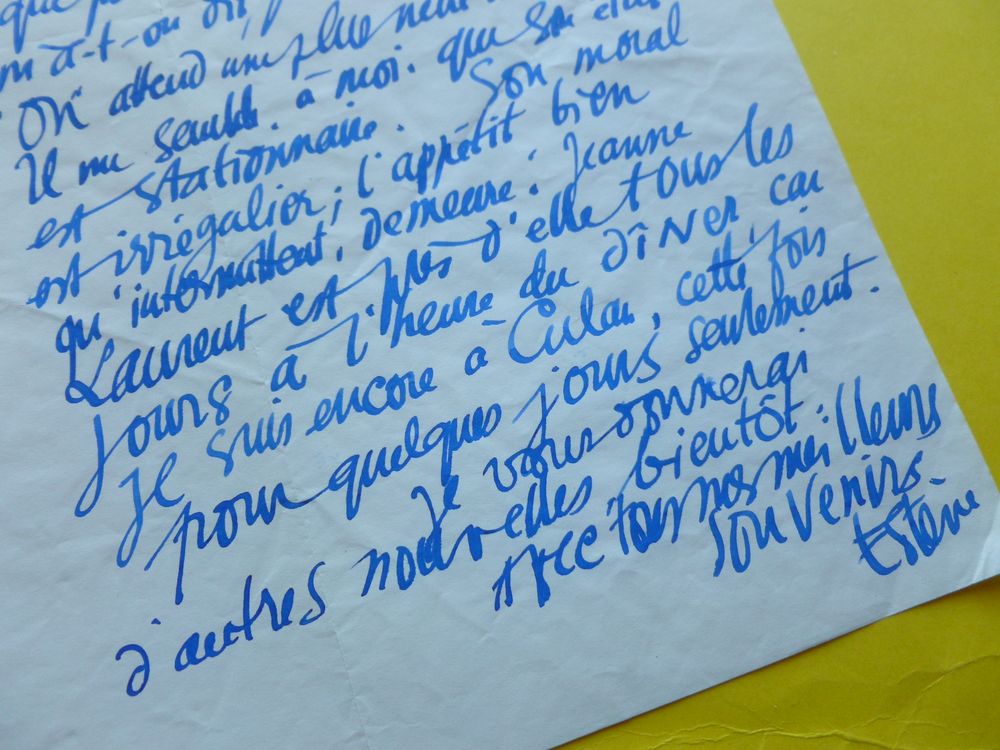 que
m'a-t-on dit,
On attend une
Il me semble à moi. que son état
est stationnaire. Son moral
est irrégulier; l'appétit bien
qu'intermittent, demeure. Jeanne
Laurent est près d'elle tous les
jours à l'heure du dîner, car
je suis encore à Culan, cette fois
pour quelques jours seulement.
Je vous donnerai
d'autres nouvelles bientôt.
avec tous nos meilleurs
souvenirs.